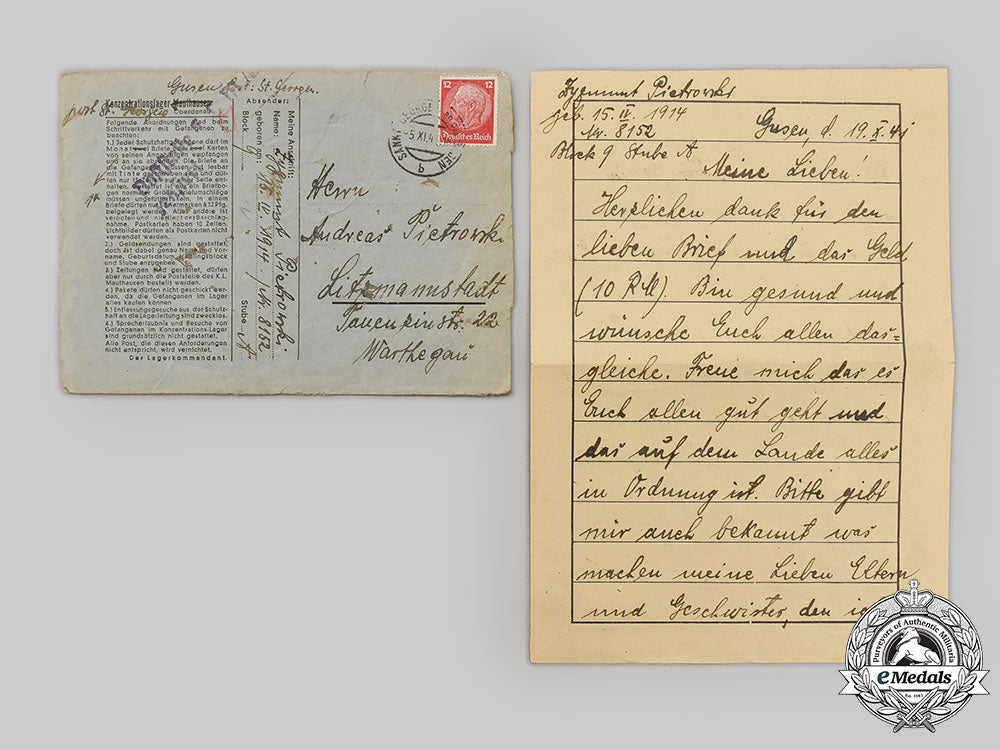 Gusen Post: St. Georgen
Konzentrationslager Mauthausen
Oberdonau
post St. Georgen
Folgende Anordnungen sind beim
Schriftverkehr mit Gefangenen zu
beachten:
1.) Jeder Schutzhaftgefangene darf im
Monat
von seinen Angehörigen empfangen
und an sie absenden. Die Briefe an
die Gefangenen müssen gut lesbar
mit Tinte
auf einer Seite ent-
halten.
gen normaler Größe. Briefumschläge
müssen ungefüttert sein. In einem
Briefe dürfen nur 5 Briefmarken à 12 Pfg.
beigelegt werden. Alles andere ist
verboten und unterliegt der Beschlag-
nahme. Postkarten haben 10 Zeilen.
Lichtbilder dürfen als Postkarten nicht
verwendet werden.
2.) Geldsendungen sind gestattet,
doch ist dabei genau Name und Vor-
name, Geburtsdatum, Häftlingsblock
und Stube anzugeben.
3.) Zeitungen sind gestattet, dürfen
aber nur durch die Poststelle des K.L.
Mauthausen bestellt werden.
4.) Pakete dürfen nicht geschickt wer-
den, da die Gefangenen im Lager
alles kaufen können
5.) Entlassungsgesuche aus der Schutz-
haft an die Lagerleitung sind zwecklos.
6.) Sprecherlaubnis und Besuche von
Gefangenen im Konzentrations-Lager
sind grundsätzlich nicht gestattet.
Alle Post, die diesen Anforderungen
nicht entspricht, wird vernichtet.
Der Lagerkommandant.
Absender:
Meine Anschrift:
Name: Zygmunt Pietrowski
geboren am: 15 IV 1914. Nr. 8152
Block: 9 Stube A
12 12
Deutsches Reich
-5.XI.4
b
Herrn
Andreas Pietrowski
Litzmannstadt
Tauenzinstr. 22
Warthegau
Zygmunt Pietrowski
geb. 15. IV. 1914
Nr. 8152
Gusen, d. 19. X. 41
Block 9 Stube A
Meine Lieben.
Herzlichen dank für den
lieben Brief und das Geld
(10 RM). Bin gesund und
wünsche Euch allen das=
gleiche. Freue mich das es
Euch allen gut geht und
das auf dem Lande alles
in Ordnung ist. Bitte gibt
mir auch bekannt was
machen meine Lieben Eltern
und Geschwister, den
Purveyors of Authentic Militaria
eMedals